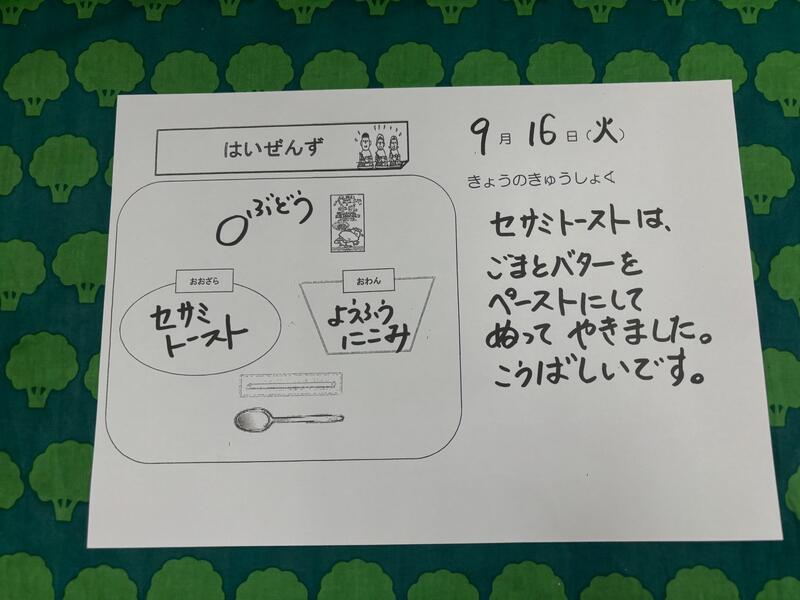 はいぜんず
ぶどう
おおざら
セサミ
トースト
おわん
ようふう
にこみ
9月16日(火)
きょうのきゅうしょく
セサミトーストは、
ごまとバターを
ペーストにして
ぬって やきました。
こうばしいです。